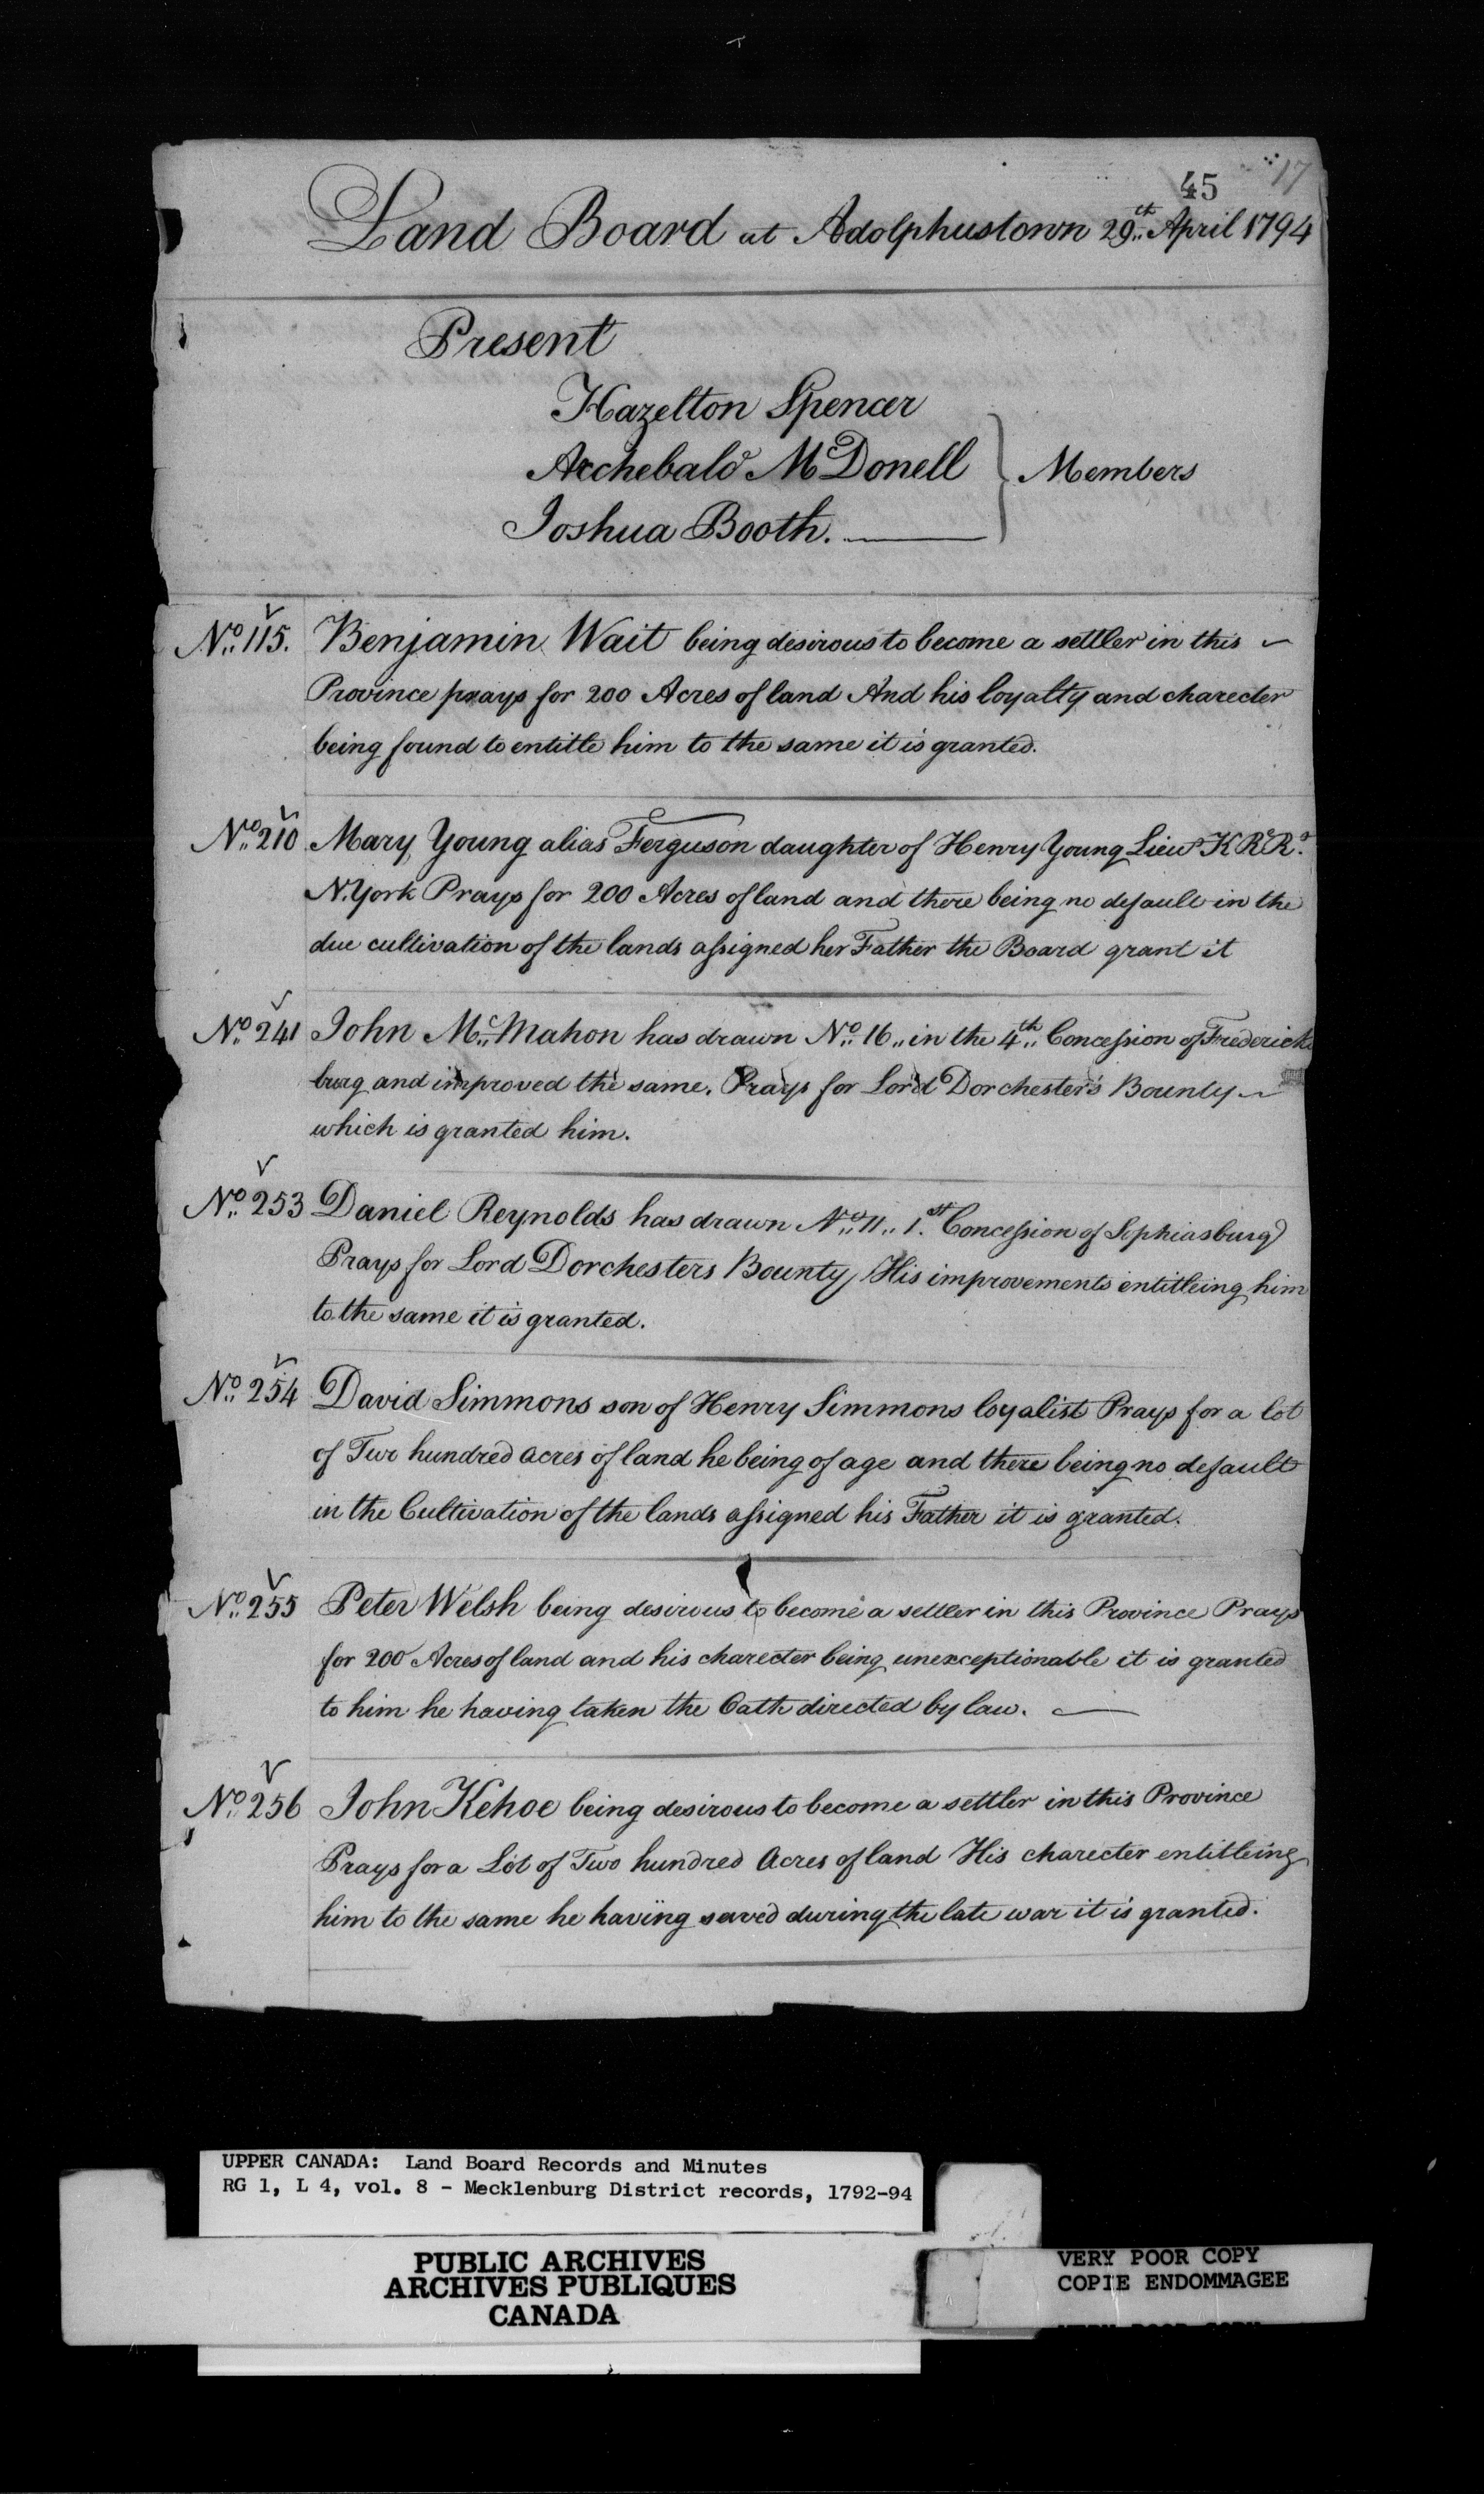 45
17
Land Board at Adolphustown 29th April 1794
Present
Hazelton Spencer
Archebald McDonell } Members
Joshua Booth.
No 115. Benjamin Wait being desirous to become a settler in this
Province prays for 200 Acres of land And his loyalty and charecter
being found to entitle him to the same it is granted.
No 210 Mary Young alias Ferguson daughter of Henry Young Lieut K Rl R.
N. York Prays for 200 Acres of land and there being no default in the
due cultivation of the lands assigned her Father the Board grant it
No 241 John Mc Mahon has drawn No 16 in the 4th Concession of Fredericks
burg and improved the same. Prays for Lord Dorchester's Bounty
which is granted him.
No 253 Daniel Reynolds has drawn No 11 1st Concession of Sophiasburg
Prays for Lord Dorchesters Bounty His improvements entitleing him
to the same it is granted.
No 254 David Simmons son of Henry Simmons loyalist Prays for a lot
of Two hundred acres of land he being of age and there being no default
in the Cultivation of the lands assigned his Father it is granted.
No 255 Peter Welsh being desirous to become a settler in this Province Prays
for 200 Acres of land and his charecter being unexceptionable it is granted
to him he having taken the Oath directed by law.
No 256 John Kehoe being desirous to become a settler in this Province
Prays for a Lot of Two hundred Acres of land His charecter entitleing
him to the same he having served during the late war it is granted.
UPPER CANADA: Land Board Records and Minutes
RG 1, L 4, vol. 8 - Mecklenburg District records, 1792-94
PUBLIC ARCHIVES
ARCHIVES PUBLIQUES
CANADA
VERY POOR COPY
COPIE ENDOMMAGEE